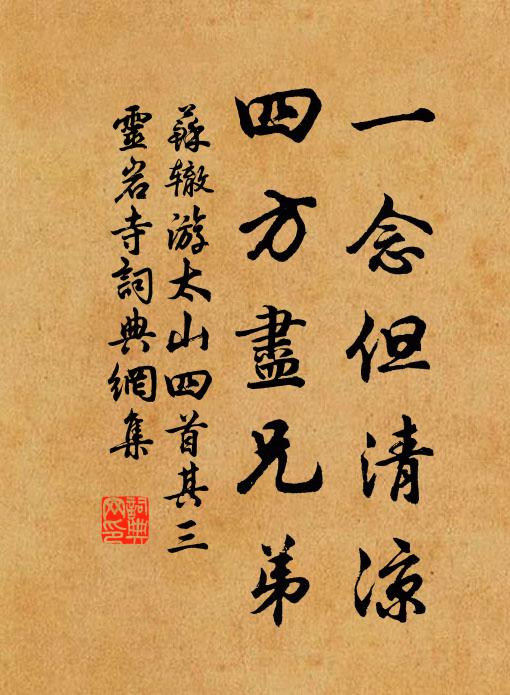 一念但清涼
四方盡兄弟
蘇辙游太山四首其三
靈岩寺詞典網集
詞典
网印